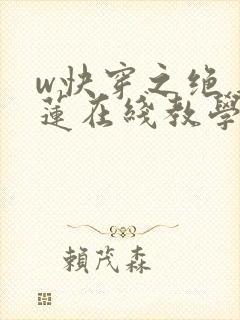 w,快穿之绝
莲在綫教學
賴茂森